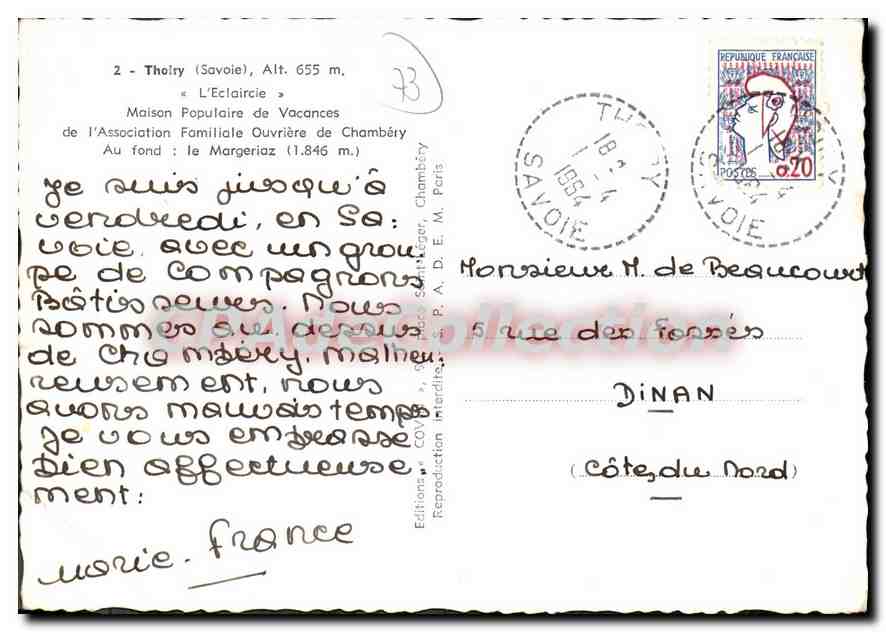 2 - Thoiry (Savoie), Alt. 655 m.
« L'Eclaircie »
Maison Populaire de Vacances
de l'Association Familiale Ouvrière de Chambéry
Au fond : le Margeriaz (1.846 m.)
73
Je suis jusqu'à
vendredi, en Sa-
voie, avec un grou-
pe de Compagnons
Bâtisseurs. Nous
sommes au-dessus
de Chambéry. Malheu-
reusement, nous
avons mauvais temps.
Je vous embrasse
bien affectueuse-
ment.
Marie-France
Editions « COV », Place Saint-Léger, Chambéry
Reproduction interdite S.P.A.D.E.M. Paris
SAVOIE
18
1-4
1964
REPUBLIQUE FRANÇAISE
POSTES 0,20
Monsieur M. de Beaucourt
5 rue des Fossés
DINAN
(Côtes du Nord)
CPA de Collection